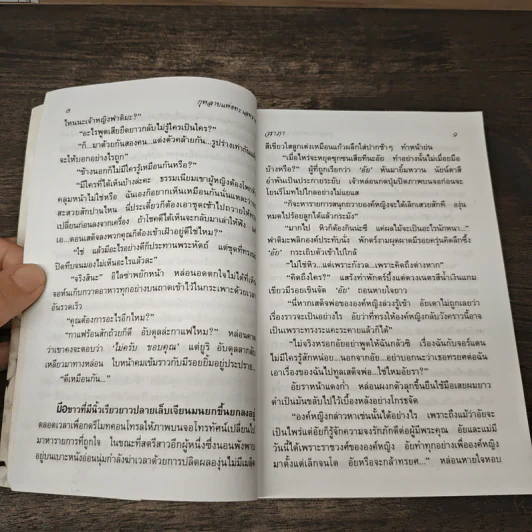 ๘
กุหลาบแห่งทะเลทราย
ไหนนะเจ้าหญิงฟาติมะ?"
"อะไรพูดเสียยืดยาวกลับไม่รู้ใครเป็นใคร?"
"ก็...มาด้วยกันสองคน...แต่งตัวคล้ายกัน...รูปร่างเท่ากันแล้ว
จะให้บอกอย่างไรถูก"
"ช้างนอกก็ไม่มีใครรู้เหมือนกันหรือ?"
"มีใครที่ได้เห็นบ้างล่ะคะ ธรรมเนียมเขาผู้หญิงต้องโพก
คลุมหน้าไม่ใช่หรือ ฉันเองก็อยากเห็นเหมือนกันนั่นแหละว่า
สะสวยสักปานไหน นี่ประเดี๋ยวก็ต้องเอาชุดเข้าไปถวายให้
เปลี่ยนก่อนลงจากเครื่อง ถ้าโชคดีได้เห็นจะกลับมาเล่าให้ฟัง
เอ...ตอนเสด็จลงพวกคุณก็ต้องเข้าเฝ้าอยู่ดีใช่ไหม?"
"ใช่ แล้วมีอะไรอย่างดีก็ประทานพระหัตถ์ แต่ชุดที่ทรง
ปิดทึบจนมองไม่เห็นอะไรแล้วล่ะ"
"จริงสินะ" อีไลซ่าพยักหน้า หล่อนอดตกใจไม่ได้ที่เห็น
จอห์นเก็บกวาดอาหารทุกอย่างบนถาดเข้าไว้ในกระเพาะด้วยเวลา
อันรวดเร็ว
"คุณต้องการอะไรอีกไหม?"
"กาแฟร้อนสักถ้วยก็ดี อับดุลล่ะกาแฟไหม?" หล่อนคาด
ว่าเขาคงจะตอบว่า 'ไม่ครับ ขอบคุณ' แต่ยูริ อับดุลลากลับ
เหลียวมาทางหล่อน ใบหน้าคมเข้มราวกับมีรอยยิ้มอยู่ประปราย
"ดีเหมือนกัน..."
มือขาวที่มีนิ้วเรียวยาวปลายเล็บเจียนมนยกขึ้นยกลงอยู่
ตลอดเวลาเพื่อกดรีโมทคอนโทรลให้ภาพบนจอโทรทัศน์เปลี่ยนไป
มาหารายการที่ถูกใจ ในขณะที่สตรีสาวอีกผู้หนึ่งซึ่งนอนพังพาบ
อยู่บนเบาะหนังอ่อนนุ่มกำลังฆ่าเวลาด้วยการปลิดผลองุ่นไม่มีเมล็ด
วราภา
๙
สีเขียวใสลูกเต่งเหมือนแก้วผลึกใส่ปากช้าๆ ทำหน้าย่น
"เมื่อไหร่จะหยุดซุกซนเสียทีนะอัย ทำอย่างนั้นไม่เมื่อยมือ
บ้างหรือ?" ผู้ที่ถูกเรียกว่า 'อัย' หันมายิ้มหวาน นัยน์ตาสี
อำพันเป็นประกายระยับ เจ้าหล่อนกดปุ่มปิดภาพบนจอก่อนจะ
โยนรีโมทไปไกลอย่างไม่แยแส
"ก็จะหารายการสนุกถวายองค์หญิงจะได้เลิกเสวยสักที องุ่น
หมดไปร้อยลูกได้แล้วกระมัง"
"มากไป หิวก็ต้องกินน่ะซี แต่ผลไม้จะเป็นอะไรนักหนา..."
ฟาติมะพลิกองค์ประทับนั่ง พักตร์งามผุดผาดมีรอยครุ่นคิดลึกซึ้ง
'อัย' กระเถิบตัวเข้าไปใกล้
"ไม่ใช่หิว...แต่เพราะกังวล...เพราะคิดถึงต่างหาก"
"คิดถึงใคร?" แสร้งทำพักตร์บึ้งแต่ดวงเนตรสีน้ำเงินแกม
เขียวมีรอยเขินจัด 'อัย' ถอนหายใจยาว
"นี่หากเสด็จพ่อขององค์หญิงล่วงรู้เข้า อัยเดาไม่ถูกเลยว่า
เรื่องราวจะเป็นอย่างไร อัยว่าที่ทรงให้องค์หญิงกลับวังคราวนี้อาจ
เป็นเพราะทรงระแคะระคายแล้วก็ได้"
"ไม่จริงหรอกอัยอย่าพูดให้ฉันกลัวซิ เรื่องฉันกับจอร์แดน
ไม่มีใครรู้สักหน่อย...นอกจากอัย...อย่าบอกนะว่าเธอทรยศต่อฉัน
เอาเรื่องของฉันไปทูลเสด็จพ่อ...ใช่ไหมอัยรา?"
อัยราหน้าแดงก่ำ หล่อนผงกตัวลุกขึ้นยืนใช้มือเสยผมยาว
ดำเป็นมันขลับไปไว้เบื้องหลังอย่างโกรธจัด
"องค์หญิงกล่าวหาเช่นนั้นได้อย่างไร เพราะถึงแม้ว่าอัยจะ
เป็นไพร่แต่อัยก็รู้จักความจงรักภักดีต่อผู้มีพระคุณ อัยและแม่มี
วันนี้ได้เพราะราชวงศ์ขององค์หญิง อัยทำทุกอย่างเพื่อองค์หญิง
มาตั้งแต่เล็กจนโต อัยหรือจะกล้าทรยศ..." หล่อนหายใจหอบ